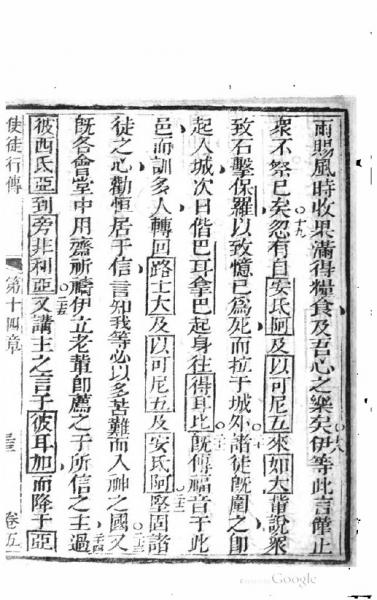 雨賜風時收果滿得糧食及吾心之樂矣伊等此言僅止
衆不祭已矣忽有自安氏阿及以可尼五來如大輩說衆
致石擊保羅以致憶已爲死而拉于城外諸徒旣圍之卽
起入城次日偕巴耳拿巴起身往得耳比旣傳福音于此
邑而訓多人轉回路士大及以可尼五及安氏阿堅固諸
徒之心勸恒居于信言知我等必以多苦難而入神之國又
旣各會堂中用齋祈禱伊立老輩卽薦之于所信之主過
彼西氏亞到旁非利亞又講主之言于彼耳加而降于亞
使徒行傳
第十四章
卷五
十八
十九
二十
二十一
二十二
二十三
二十四
二十五
Google